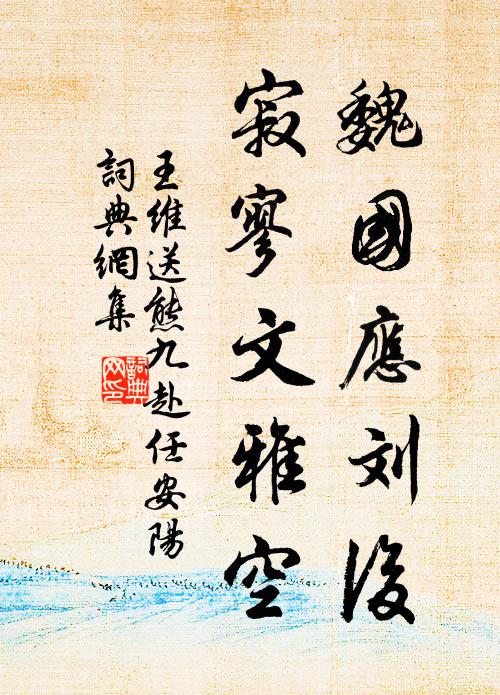 魏國應刘後
寂寥文雅空
王維送熊九赴任安陽
詞典網集
詞典网印